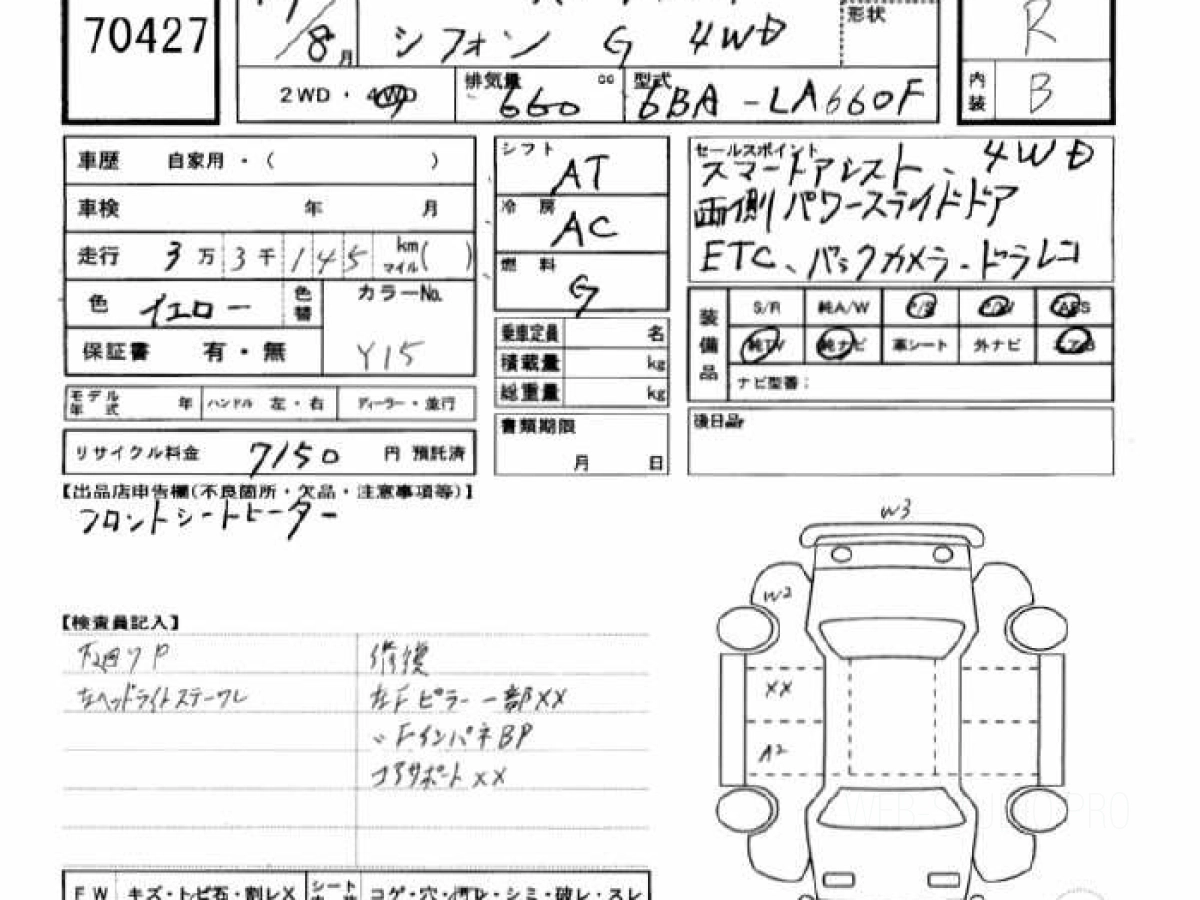 70427
8月
シフォン G 4WD
形状
R
2WD・4WD
排気量 660 cc
型式 6BA-LA660F
内装 B
車歴 自家用・( )
車検 年 月
走行 3万3千145 km マイル( )
色 イエロー 色替
カラーNo. Y15
保証書 有・無
モデル年式 年 ハンドル 左・右 ディーラー・並行
リサイクル料金 7150 円 預託済
シフト AT
冷房 AC
燃料 G
乗車定員 名
積載量 kg
総重量 kg
書類期限
月 日
セールスポイント
スマートアシスト、4WD
両側パワースライドドア
ETC、バックカメラ、ドラレコ
装備品
S/R 純A/W P/S P/W ABS
純TV 純ナビ 革シート 外ナビ エアB
ナビ型番:
後日品
【出品店申告欄(不良箇所・欠品・注意事項等)】
フロントシートヒーター
【検査員記入】
下廻りP
左ヘッドライトステーワレ
修復
左Fピラー一部XX
〃FインパネBP
コアサポートXX
W3
W2
XX
A2
FW キズ・トビ石・割レX
シート コゲ・穴・汚レ・シミ・破レ・スレ